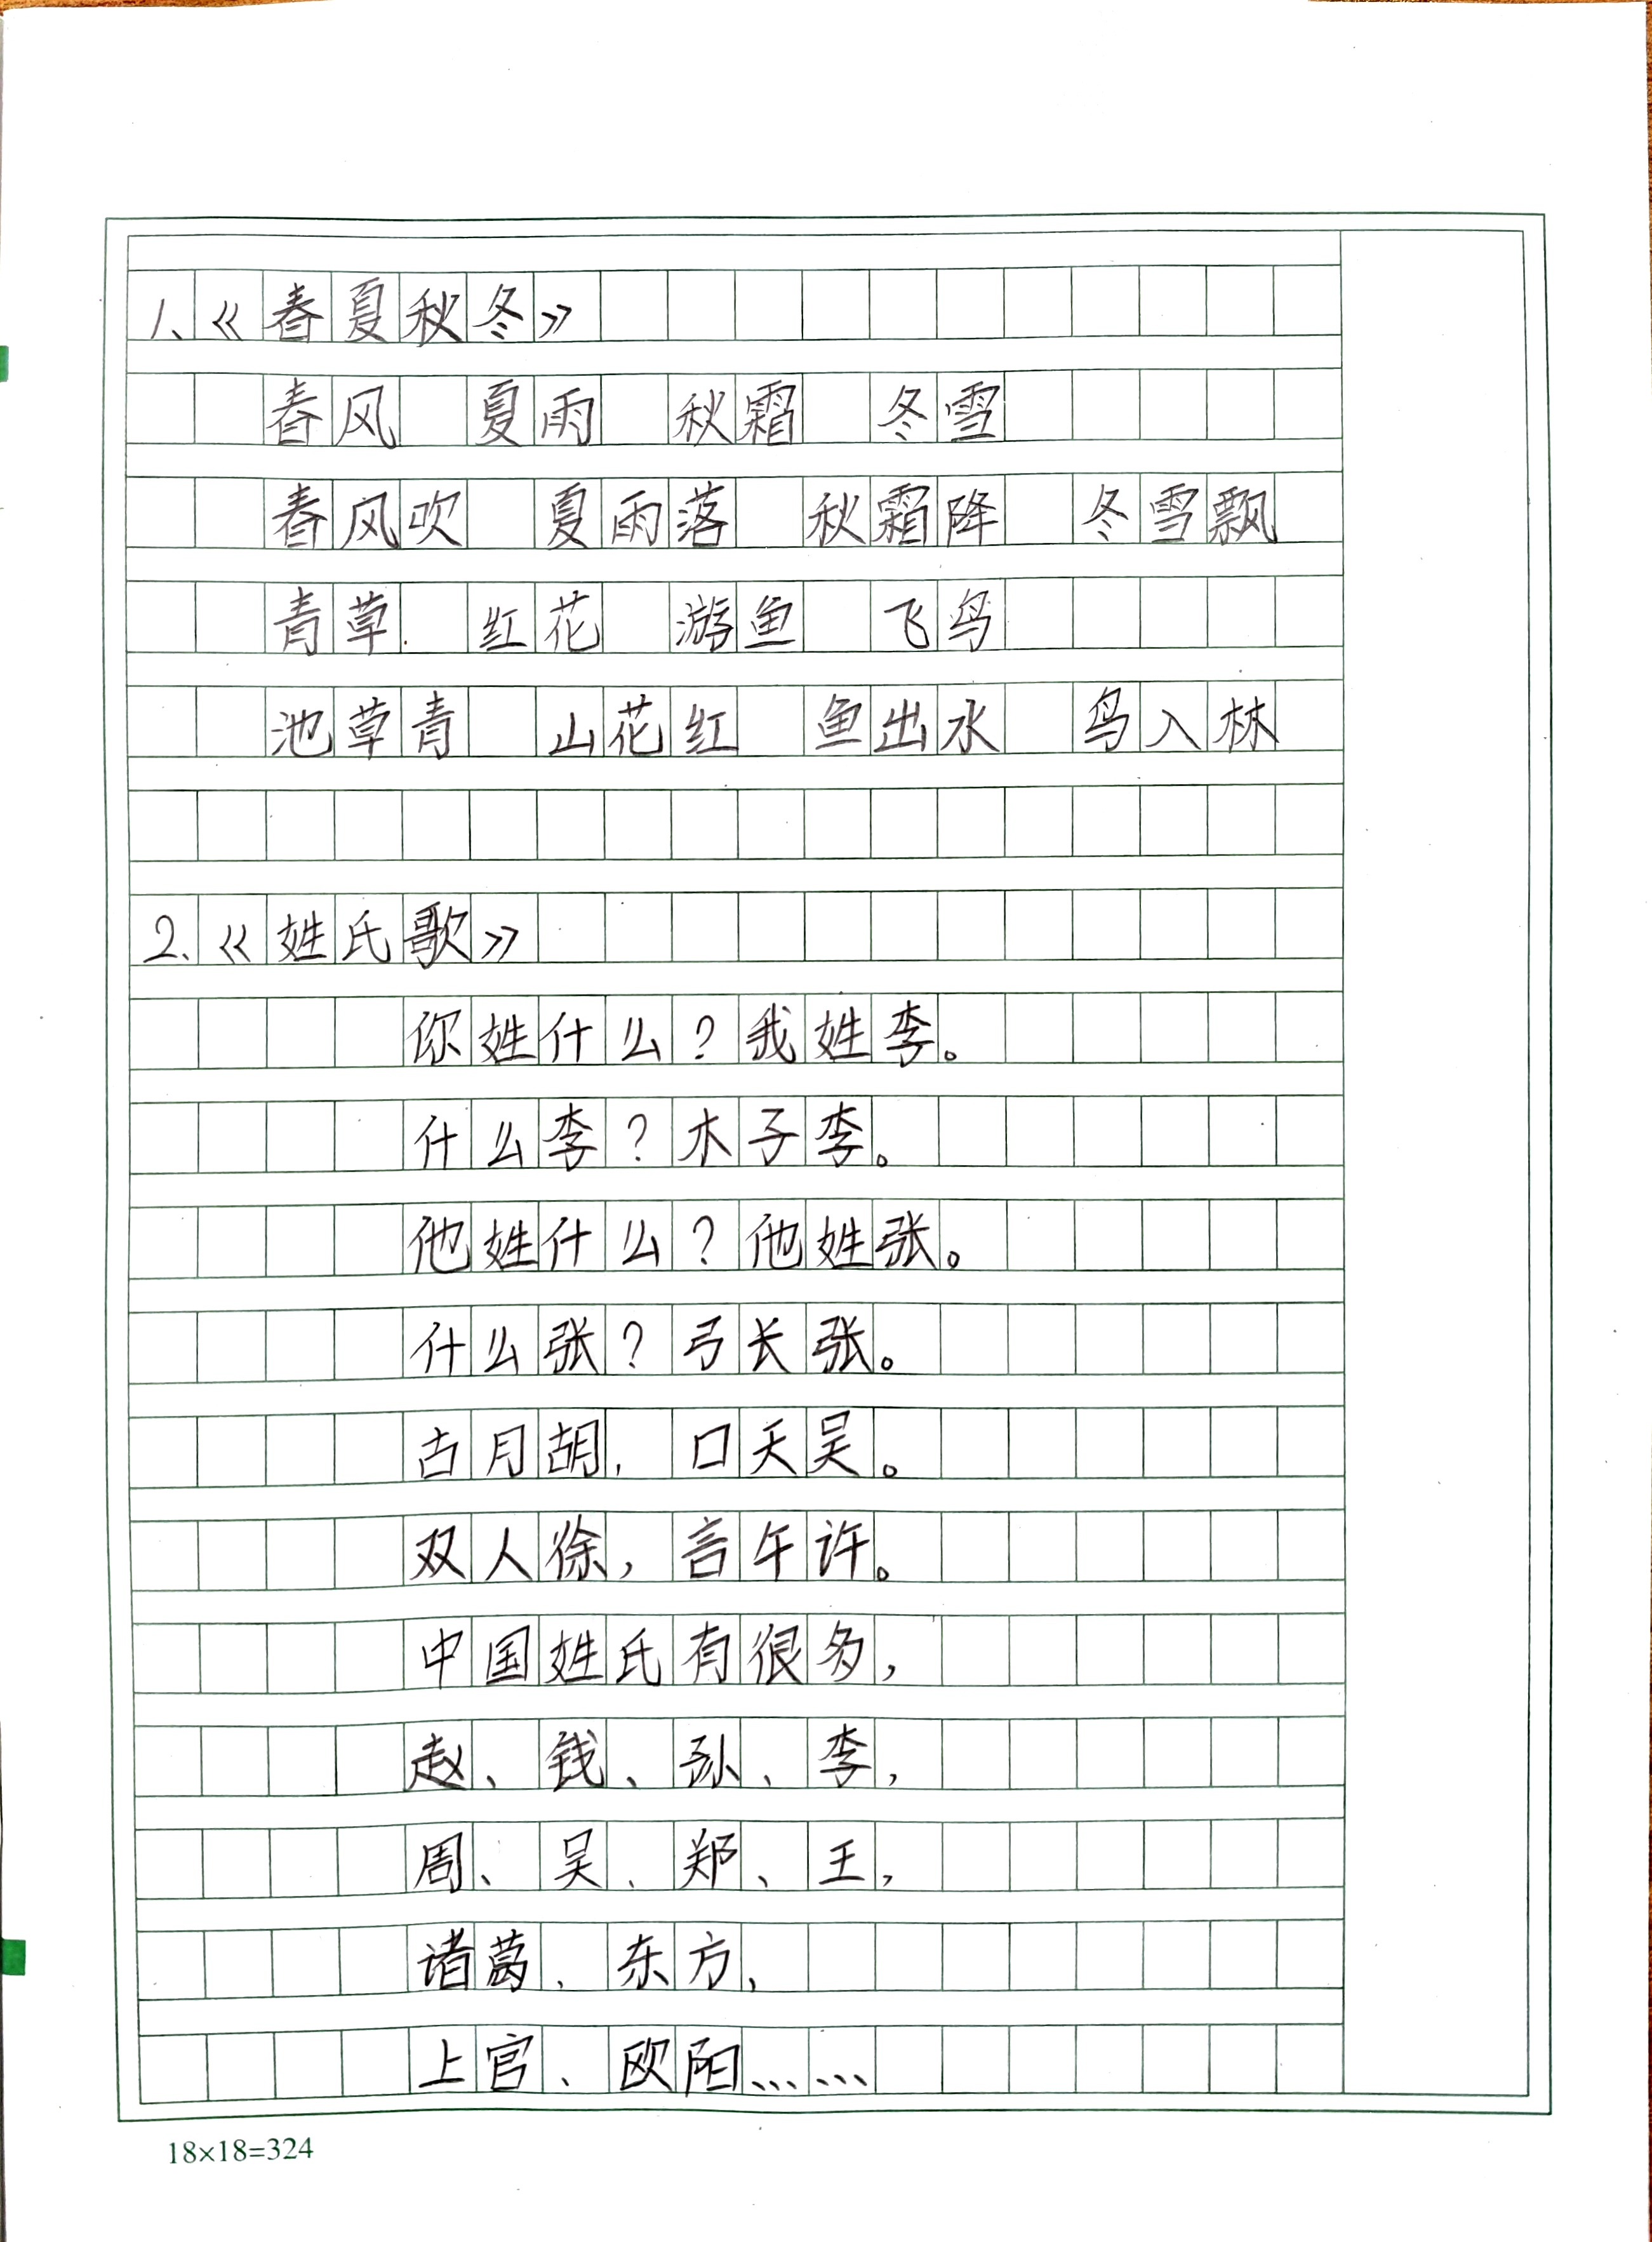 1、《春夏秋冬》
春风 夏雨 秋霜 冬雪
春风吹 夏雨落 秋霜降 冬雪飘
青草 红花 游鱼 飞鸟
池草青 山花红 鱼出水 鸟入林
2、《姓氏歌》
你姓什么？我姓李。
什么李？木子李。
他姓什么？他姓张。
什么张？弓长张。
古月胡，口天吴。
双人徐，言午许。
中国姓氏有很多，
赵、钱、孙、李，
周、吴、郑、王，
诸葛、东方，
上官、欧阳……
18×18=324